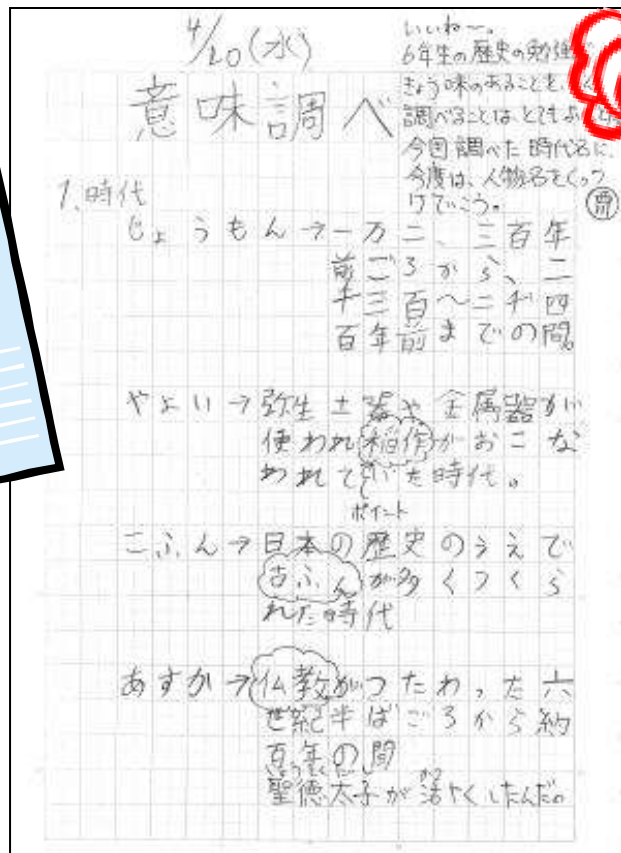 4/20(水)
意味調べ
いいね〜。
6年生の歴史の勉強
きょう味のあることを
調べることはとてもよ
今回調べた時代名に、
今度は、人物名をくっつ
けていこう。
1、時代
じょうもん→一万二、三百年
前ごろから、二
千三百〜二千四
百年前までの間。
やよい→弥生土器や金属器が
使われ稲作がおこな
われて いた時代。
ポイント
こふん→日本の歴史のうえで
古ふんが多くつくら
れた時代
あすか→仏教がつたわった六
世紀半ばごろから約
百年の間
聖徳太子が活やくしたんだ。